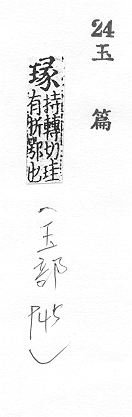 24
玉篇
瑑
持轉切珪
有圻鄂也
(玉部
P45)